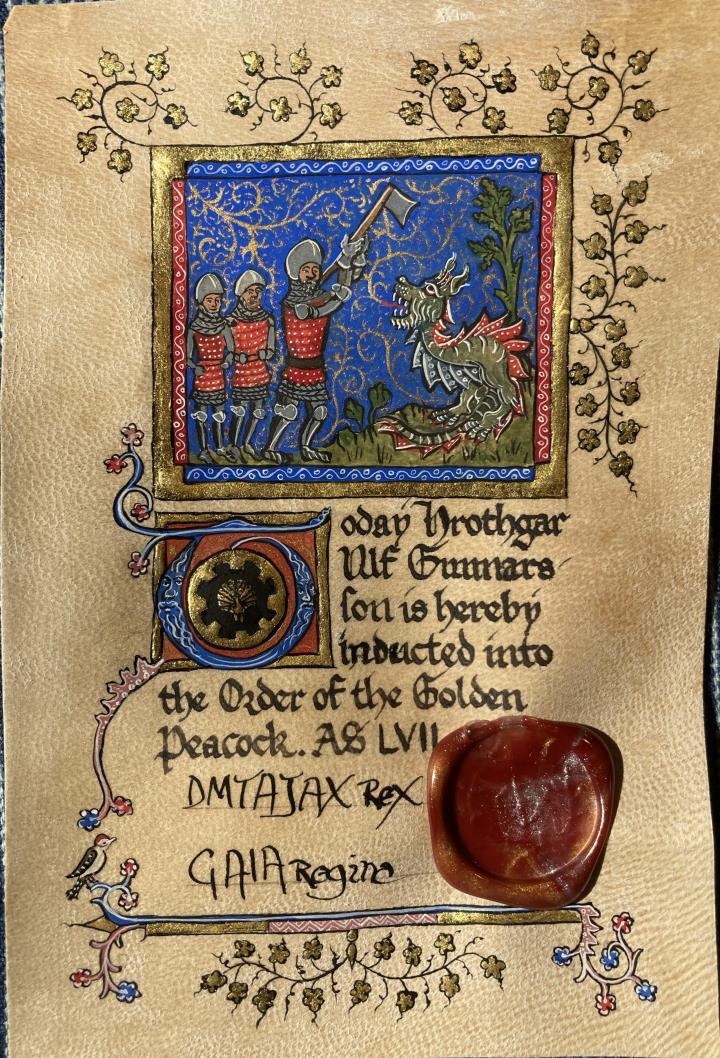 Today Hrothgar
Ulf Gunnars
son is hereby
inducted into
the Order of the Golden
Peacock. AS LVII
DMTAJAX Rex
GAIA Regina